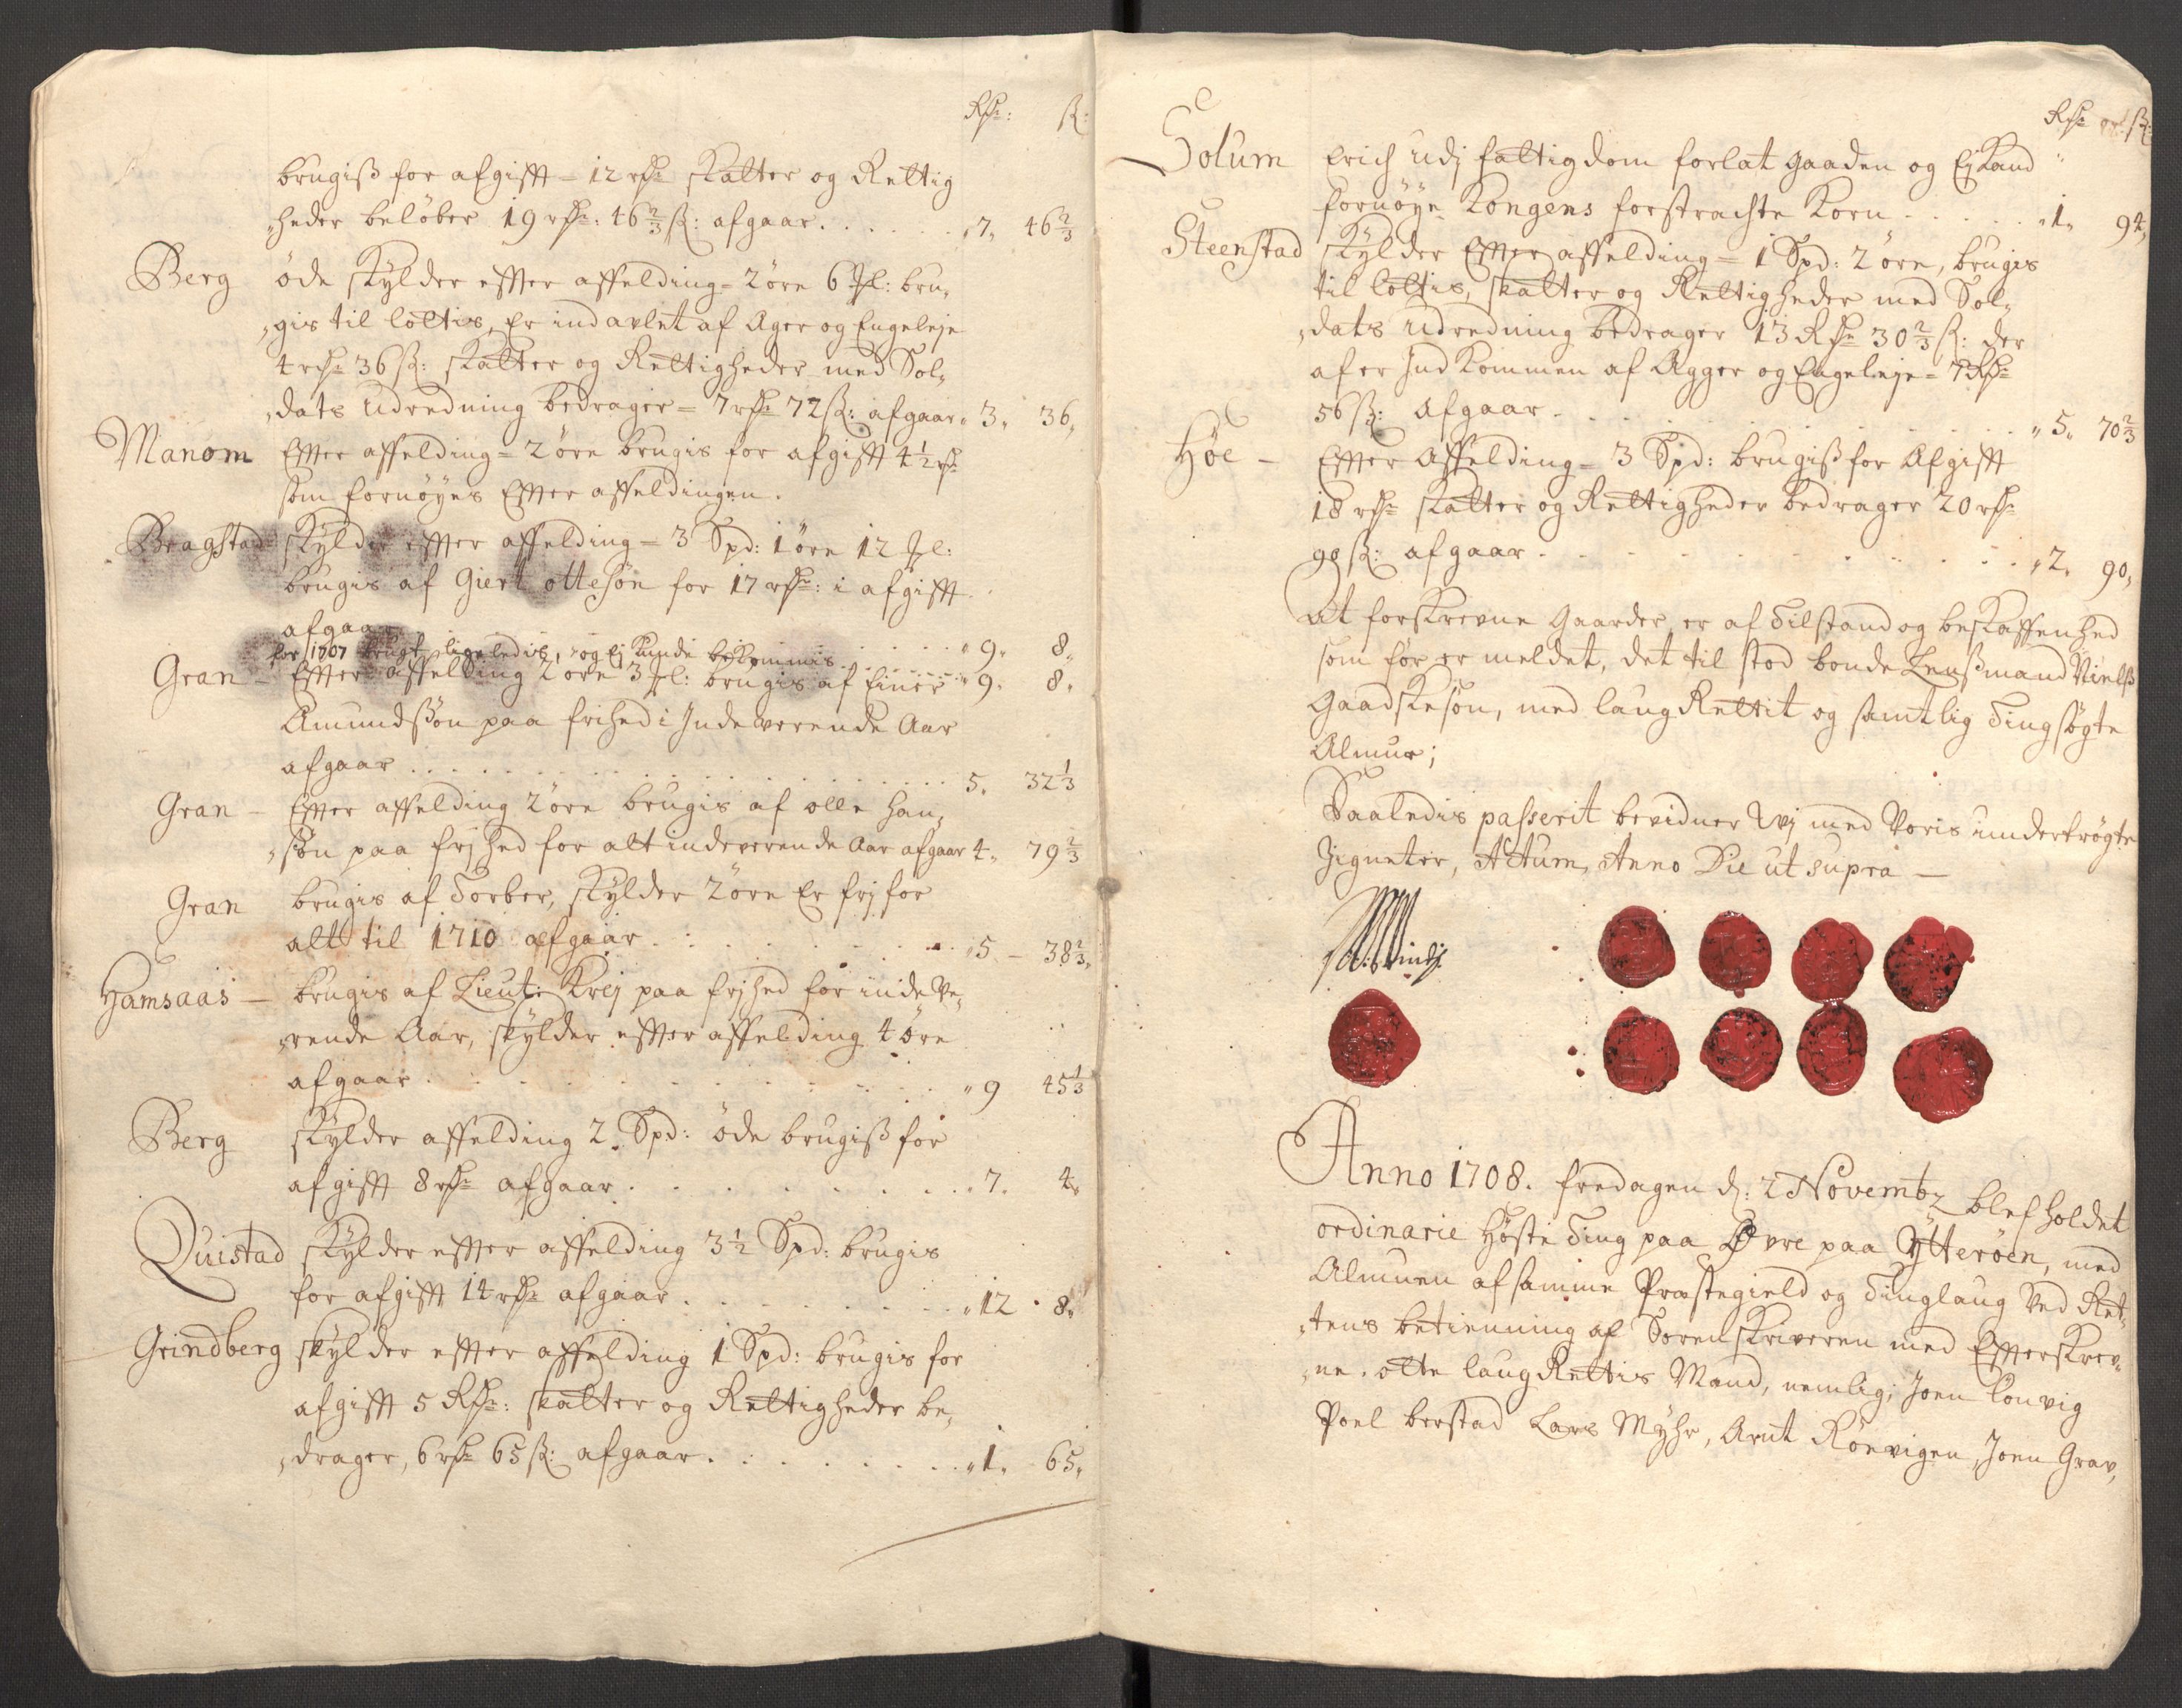 Rdr: ß:
brugiß for afgifft – 12 rdr skatter og Rettig
„heder beløber 19 rdr: 46 2/3 ß: afgaar . . . . . . „ 7„ 46 2/3
Berg øde skylder effter affelding – 2 øre 6 Ml: bru„
„gis til løttis, Er ind avlet af Ager og Engeleje
4 rdr 36 ß: skatter og Rettigheder med Sol„
„dats udredning bedrager – 7 rdr 72 ß: afgaar „ 3„ 36„
Manom Effter affelding – 2 øre brugis for afgifft 4 1/2 rdr
som fornøyes Effter affeldingen.
Bragstad skylder effter affelding – 3 Spd: 1 øre 12 Ml:
brugis af Giert ottesøn for 17 rdr: i afgifft
afgaar . . . . . . „ 9„ 8„
for 1707 brugt ligeledis, og ej kunde bekommis . . . . „ 9„ 8„
Gran – Effter affelding 2 øre 3 Ml: brugis af Einer
Amundssøn paa frihed i Indeverende Aar
afgaar . . . . . . . . . . 5„ 32 1/3
Gran – Effter affelding 2 øre brugis af olle Han„
„søn paa frjhed for alt indeverende Aar afgaar 4„ 79 2/3
Gran brugis af Torber, skylder 2 øre Er frj for
alt til 1710 afgaar . . . . . . . „ 5 – 38 2/3„
Hamsaas – brugis af Lieut: Krej paa frjhed for indeve„
„rende Aar, skylder effter affelding 4 øre
afgaar . . . . . . . . . . „ 9 45 1/3
Berg skylder affelding 2. Spd: øde brugiß for
afgifft 8 rdr afgaar . . . . . . . . „ 7. 4„
Quistad skylder effter affelding 3 1/2 Spd: brugis
for afgifft 14 rdr afgaar . . . . . . . „ 12 . 8„
Grindberg skylder effter affelding 1 Spd: brugis for
afgifft 5 Rdr: skatter og Rettigheder be„
„drager, 6 rdr 65 ß: afgaar . . . . . . . „ 1„ 65„
Rdr ß:
Solum Erich udj fattigdom forlat gaarden og Ej kand
fornøye Kongens forstrachte Korn . . . . . „ 1„ 94„
Steenstad skylder Effter affelding – 1 Spd: 2 øre, brugis
til løttis, skatter og Rettigheder med Sol„
„dats udredning bedrager 13 Rdr 30 2/3 ß: der
af er Ind kommen af Agger og Engeleje – 7 Rdr
56 ß: afgaar . . . . . . . . . „ 5„ 70 2/3
Høe – Effter affelding – 3 Spd: brugiß for Afgifft
18 rdr skatter og Rettigheder bedrager 20 rdr
90 ß: afgaar . . . . . . . . . . . „ 2„ 90„
At forskrevne Gaarder er af Tilstand og beskaffenhed
som før er meldet, det til stod bonde Lensmand Nielß
Gaadskesøn, med laug Rettit og samtlig Ting søgte
Almue;
Saaledis passerit bevidner Vj med Voris undertrøgte
Zigneter, Actum, Anno Die ut supra –
Anno 1708. fredagen d: 2 Novembr blef holdet
ordinarie Høste Ting paa Øvre paa Ytterøen, med
Almuen af samme Præstegield og Tinglaug Ved Ret„
„tens betienning af Sorenskriveren med Effterskrev„
„ne. otte laug Rettis Mænd, nemlig; Joen Lonvig
Poel berstad Lars Myhr, Arnt Rönvigen, Joen Grav„